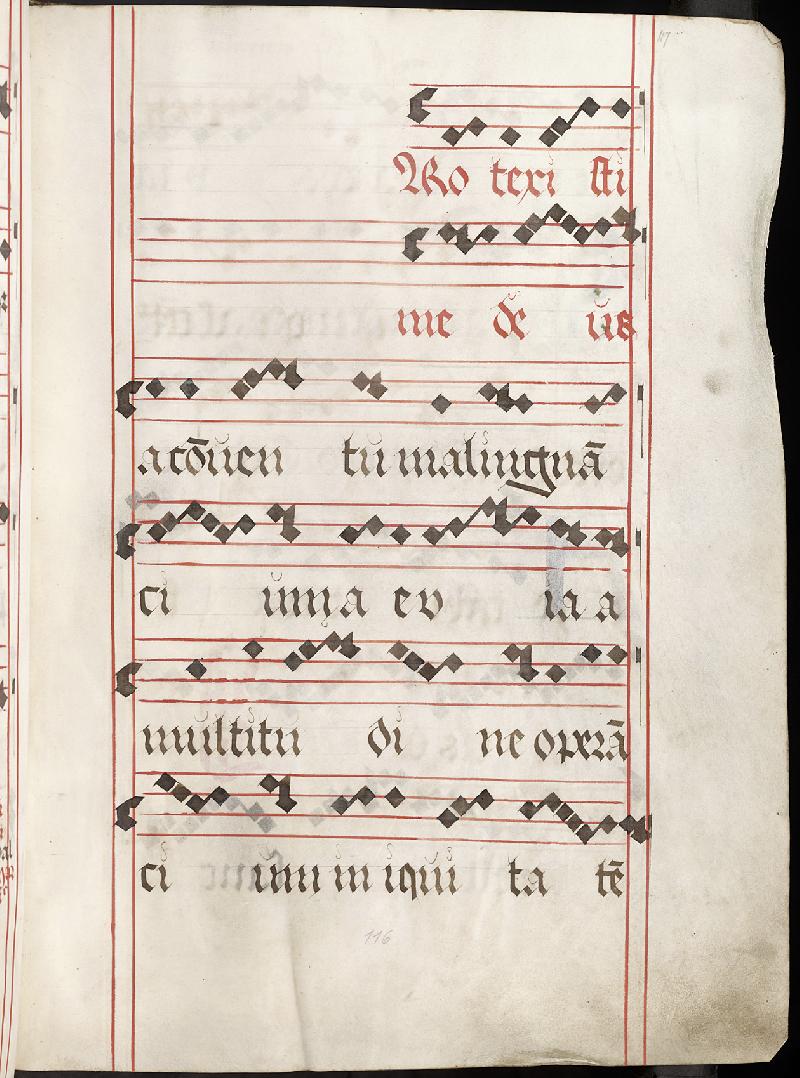 Ro texi sti
me de us
a cōuen tu malingnā
ci um a ev ia a
multitu di ne operā
ci um in iqui ta tē
116